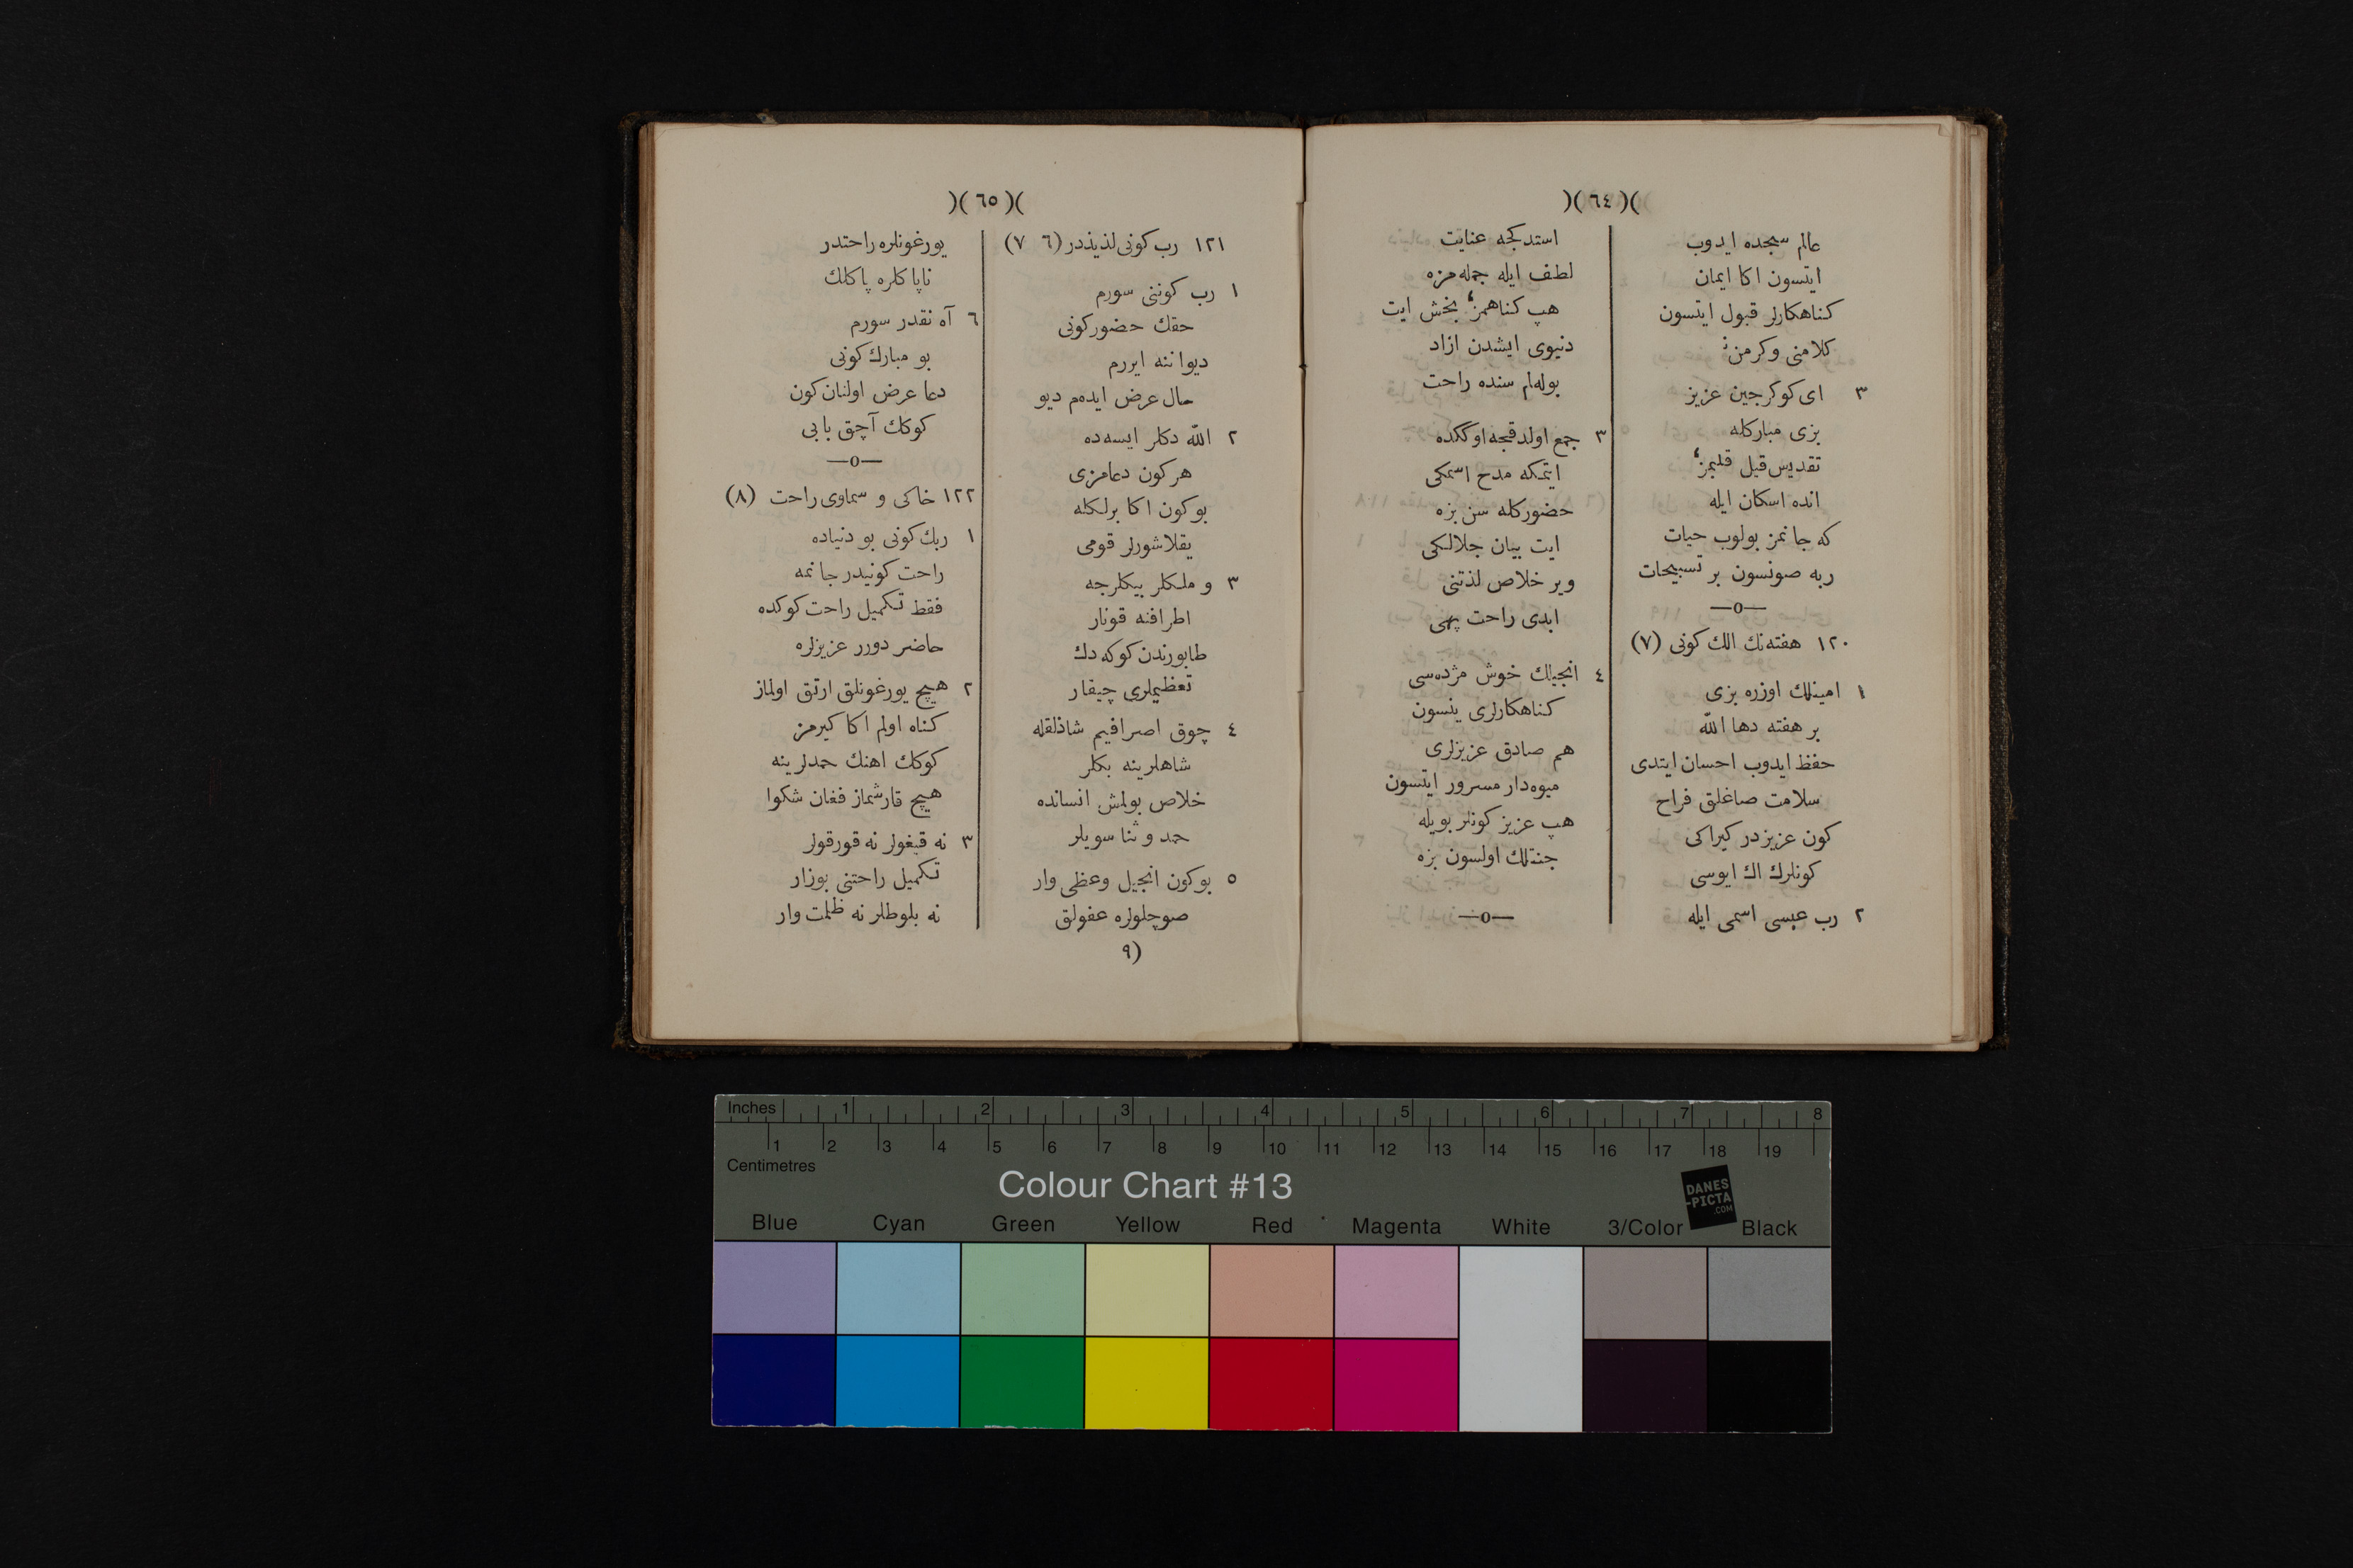 )( ٦٤ )(
عالم سجده ايدوب
ايتسون اكا ايمان
كناهكارلر قبول ايتسون
كلامنى وكرمن
٣ اى كوكرجين عزيز
بزى مباركله
تقديس قيل قلبمز
انده اسكان ايله
كه جانمز بولوب حيات
ربه صونسون بر تسبيحات
—o—
١٢٠ هفته‌نك الك كونى (٧)
١ امينلك اوزره بزى
بر هفته دها الله
حفظ ايدوب احسان ايتدى
سلامت صاغلق فراح
كون عزيزدر كيراكى
كونلرك اك ايوسى
٢ رب عيسى اسمى ايله
استدكجه عنايت
لطف ايله جمله‌مزه
هپ كناهمز بخش ايت
دنيوى ايشدن ازاد
بوله‌لم سنده راحت
٣ جمع اولدقجه اوككده
ايتمكه مدح اسمكى
حضوركله سن بزه
ايت بيان جلالكى
وير خلاص لذتنى
ابدى راحت پهى
٤ انجيلك خوش مژده‌سى
كناهكارلرى ينسون
هم صادق عزيزلرى
ميوه‌دار مسرور ايتسون
هپ عزيز كونلر بويله
جنتلك اولسون بزه
—o—
)( ٦٥ )(
١٢١ رب كونى لذيذدر (٦ ٧)
١ رب كوننى سورم
حقك حضور كونى
ديواننه ايررم
حال عرض ايده‌م ديو
٢ الله دكلر ايسه‌ده
هر كون دعامزى
بو كون اكا برلكله
يقلاشورلر قومى
٣ و ملكلر بيكلرجه
اطرافنه قونار
طابورندن كوكه دك
تعظيملرى چيقار
٤ چوق اصرافيم شاذلقله
شاهلرينه بكلر
خلاص بولمش انسانده
حمد و ثنا سويلر
٥ بو كون انجيل وعظى وار
صوچلولره عفولق
٩)
يورغونلره راحتدر
ناپاكلره پاكلك
٦ آه نقدر سورم
بو مبارك كونى
دعا عرض اولنان كون
كوكك آچق بابى
—o—
١٢٢ خاكى و سماوى راحت (٨)
١ ربك كونى بو دنياده
راحت كونيدر جانمه
فقط تكميل راحت كوكده
حاضر دورر عزيزلره
٢ هيچ يورغونلق ارتق اولماز
كناه اولم اكا كيرمز
كوكك اهنك حمدلرينه
هيچ قارشماز فغان شكوا
٣ نه قيغولر نه قورقولر
تكميل راحتنى بوزار
نه بلوطلر نه ظلمت وار
Inches 1 2 3 4 5 6 7 8
1 2 3 4 5 6 7 8 9 10 11 12 13 14 15 16 17 18 19
Centimetres
Colour Chart #13
DANES
-PICTA
.COM
Blue Cyan Green Yellow Red Magenta White 3/Color Black